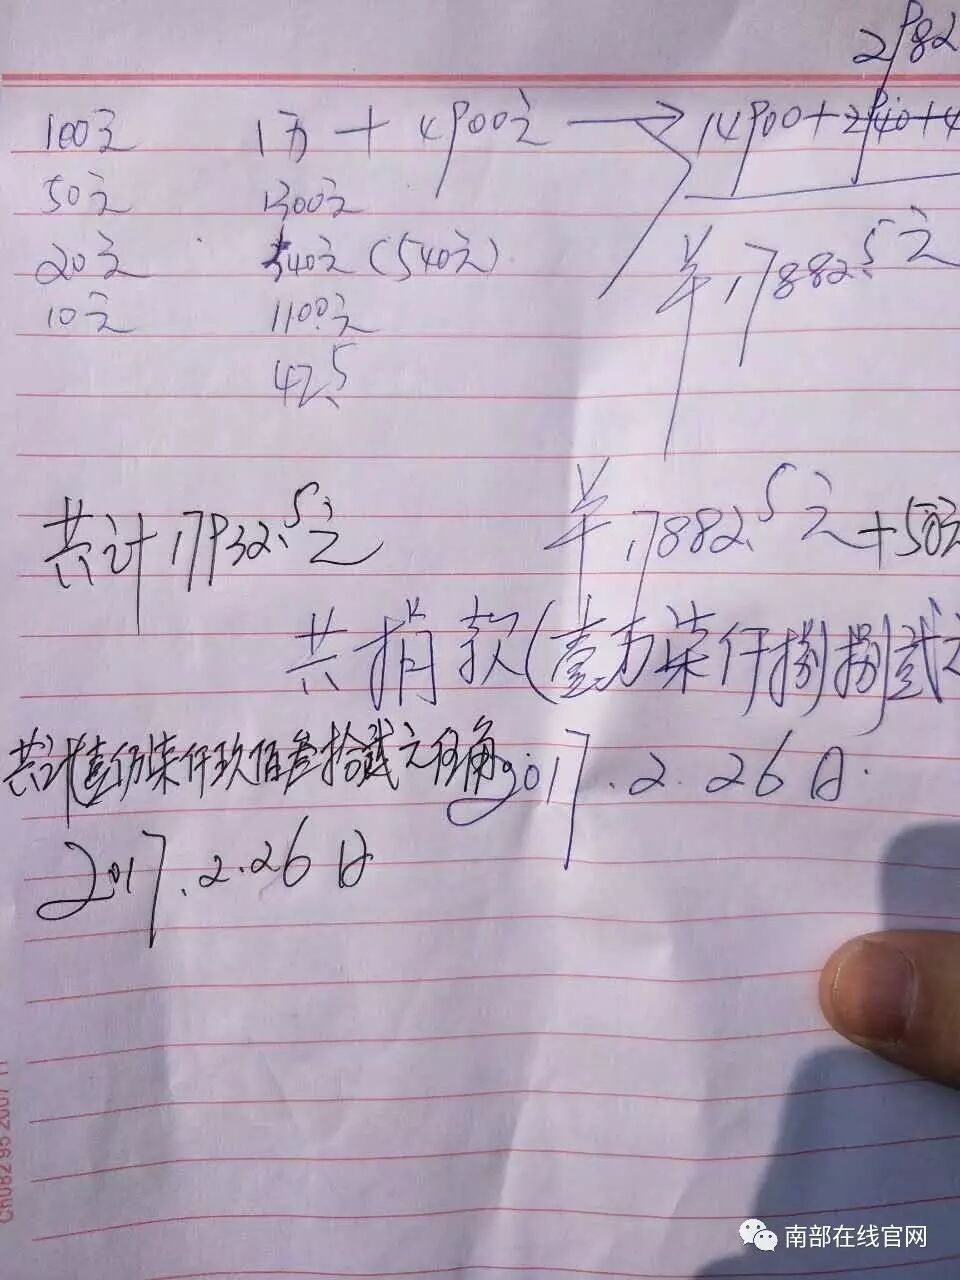 2982
100元 1万+4900元 → 14900+2940+4
50元 1300元
20元 540元(540元)
10元 1100元
¥17882.5元
42.5
共计17932.5元 ¥17882.5元+50元
共捐款(壹万柒仟捌捌贰元
共计(壹万柒仟玖佰叁拾贰元伍角
2017.2.26日.
2017.2.26日
Ch082 95 2007 11
南部在线官网